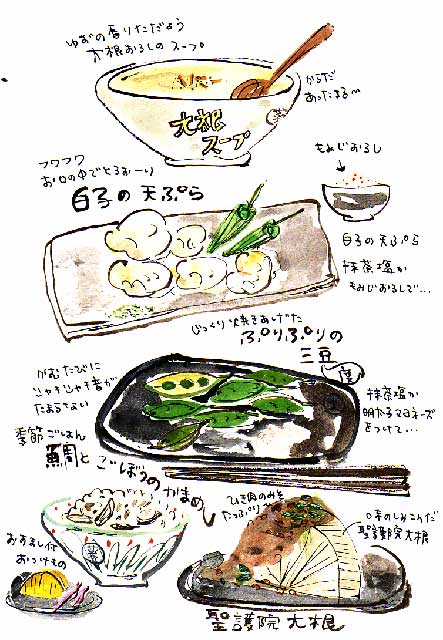 ゆずの香りただよう
大根おろしのスープ
からだ
あったまる〜
大根
スープ
フワフワ
お口の中でとろぉーり
白子の天ぷら
もみじおろし
白子の天ぷら
抹茶塩か
もみじおろしで…
じっくり焼きあげた
ぷりぷりの
三豆
かむたびに
シャキシャキ音が
たまらない
抹茶塩か
明太子マヨネーズ
をつけて…
季節ごはん
鯛とごぼうのかまめし
ひき肉のみそ
たっぷり
味のしみこんだ
聖護院大根
おすまし付
おつけもの
聖護院大根